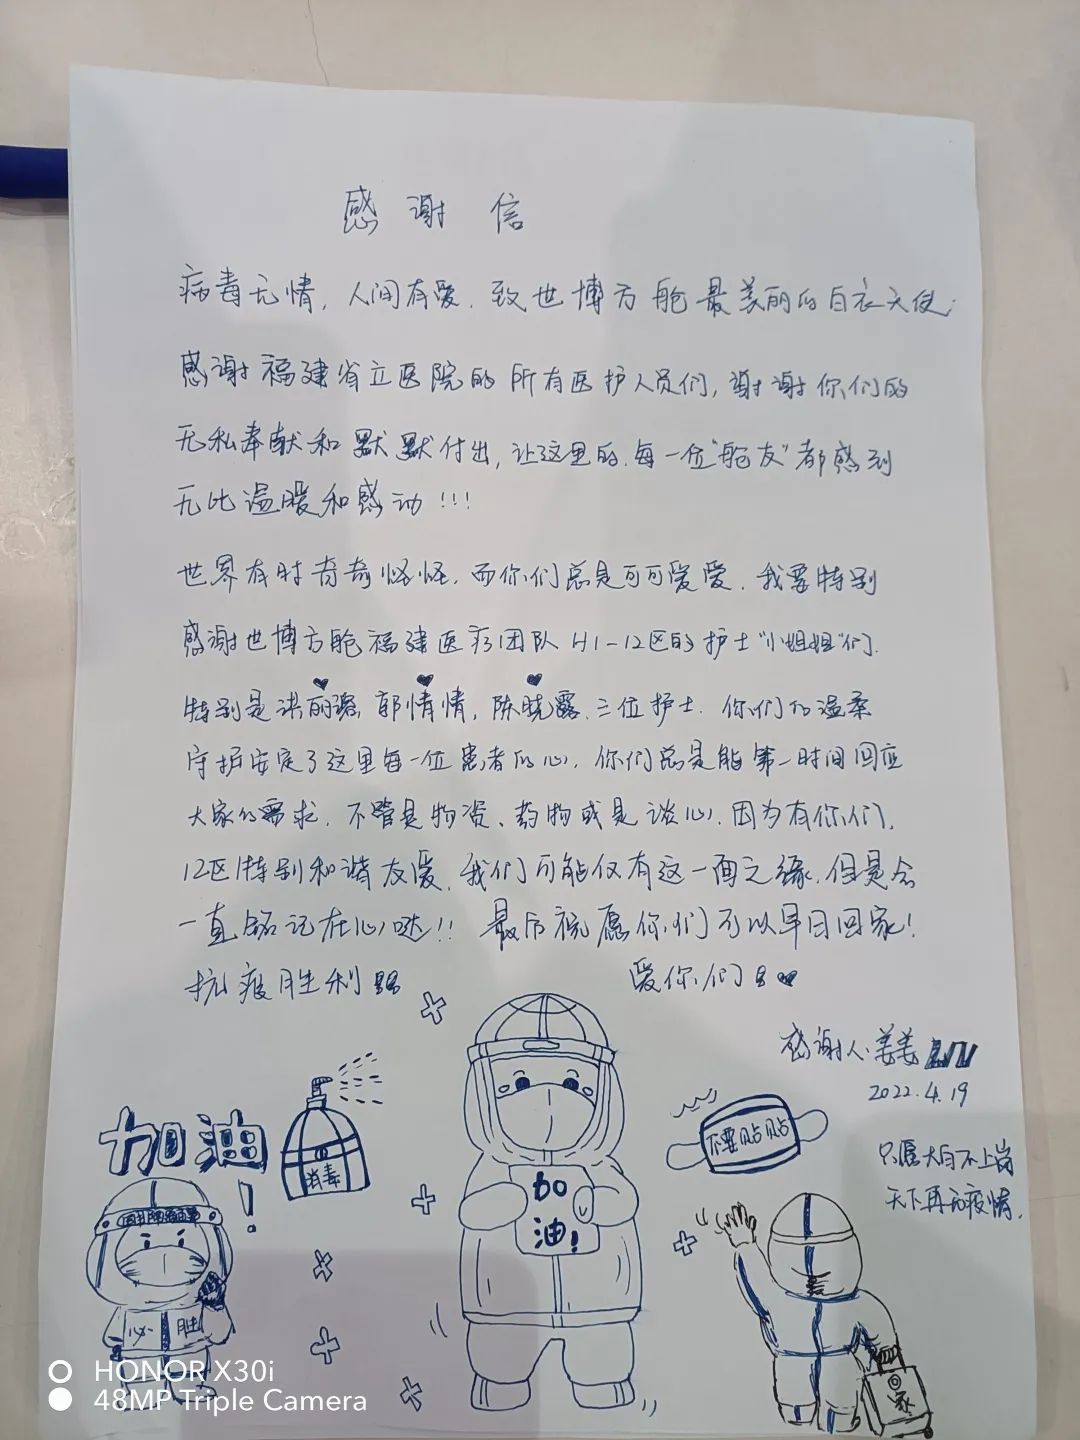 感谢信
病毒无情，人间有爱．致世博方舱最美丽的白衣天使：
感谢福建省立医院的所有医护人员们，谢谢你们的
无私奉献和默默付出，让这里的．每一位“舱友”都感到
无比温暖和感动！！！
世界有时奇奇怪怪．而你们总是可可爱爱．我要特别
感谢世博方舱福建医疗团队H1-12区的护士“小姐姐”们．
特别是洪丽璐，郭情情，陈晓露．三位护士．你们的温柔
守护安定了这里每一位患者的心．你们总是能第一时间回应
大家的需求．不管是物资、药物或是谈心．因为有你们，
12区特别和谐友爱．我们可能仅有这一面之缘．但是会
一直铭记在心哒！！最后祝愿你们可以早日回家！
抗疫胜利 爱你们
感谢人：姜姜
2022.4.19
只愿大白不上岗
天下再无疫情．
加油！
消毒
加
油！
不要贴贴
必胜
姜
家
HONOR X30i
48MP Triple Camera